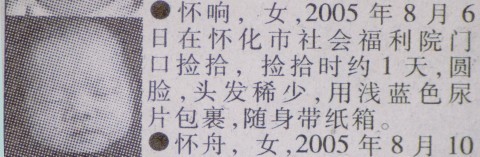 ●怀响，女,2005年8月6
日在怀化市社会福利院门
口捡拾，捡拾时约1天,圆
脸,头发稀少,用浅蓝色尿
片包裹,随身带纸箱。
●怀舟，女,2005年8月10